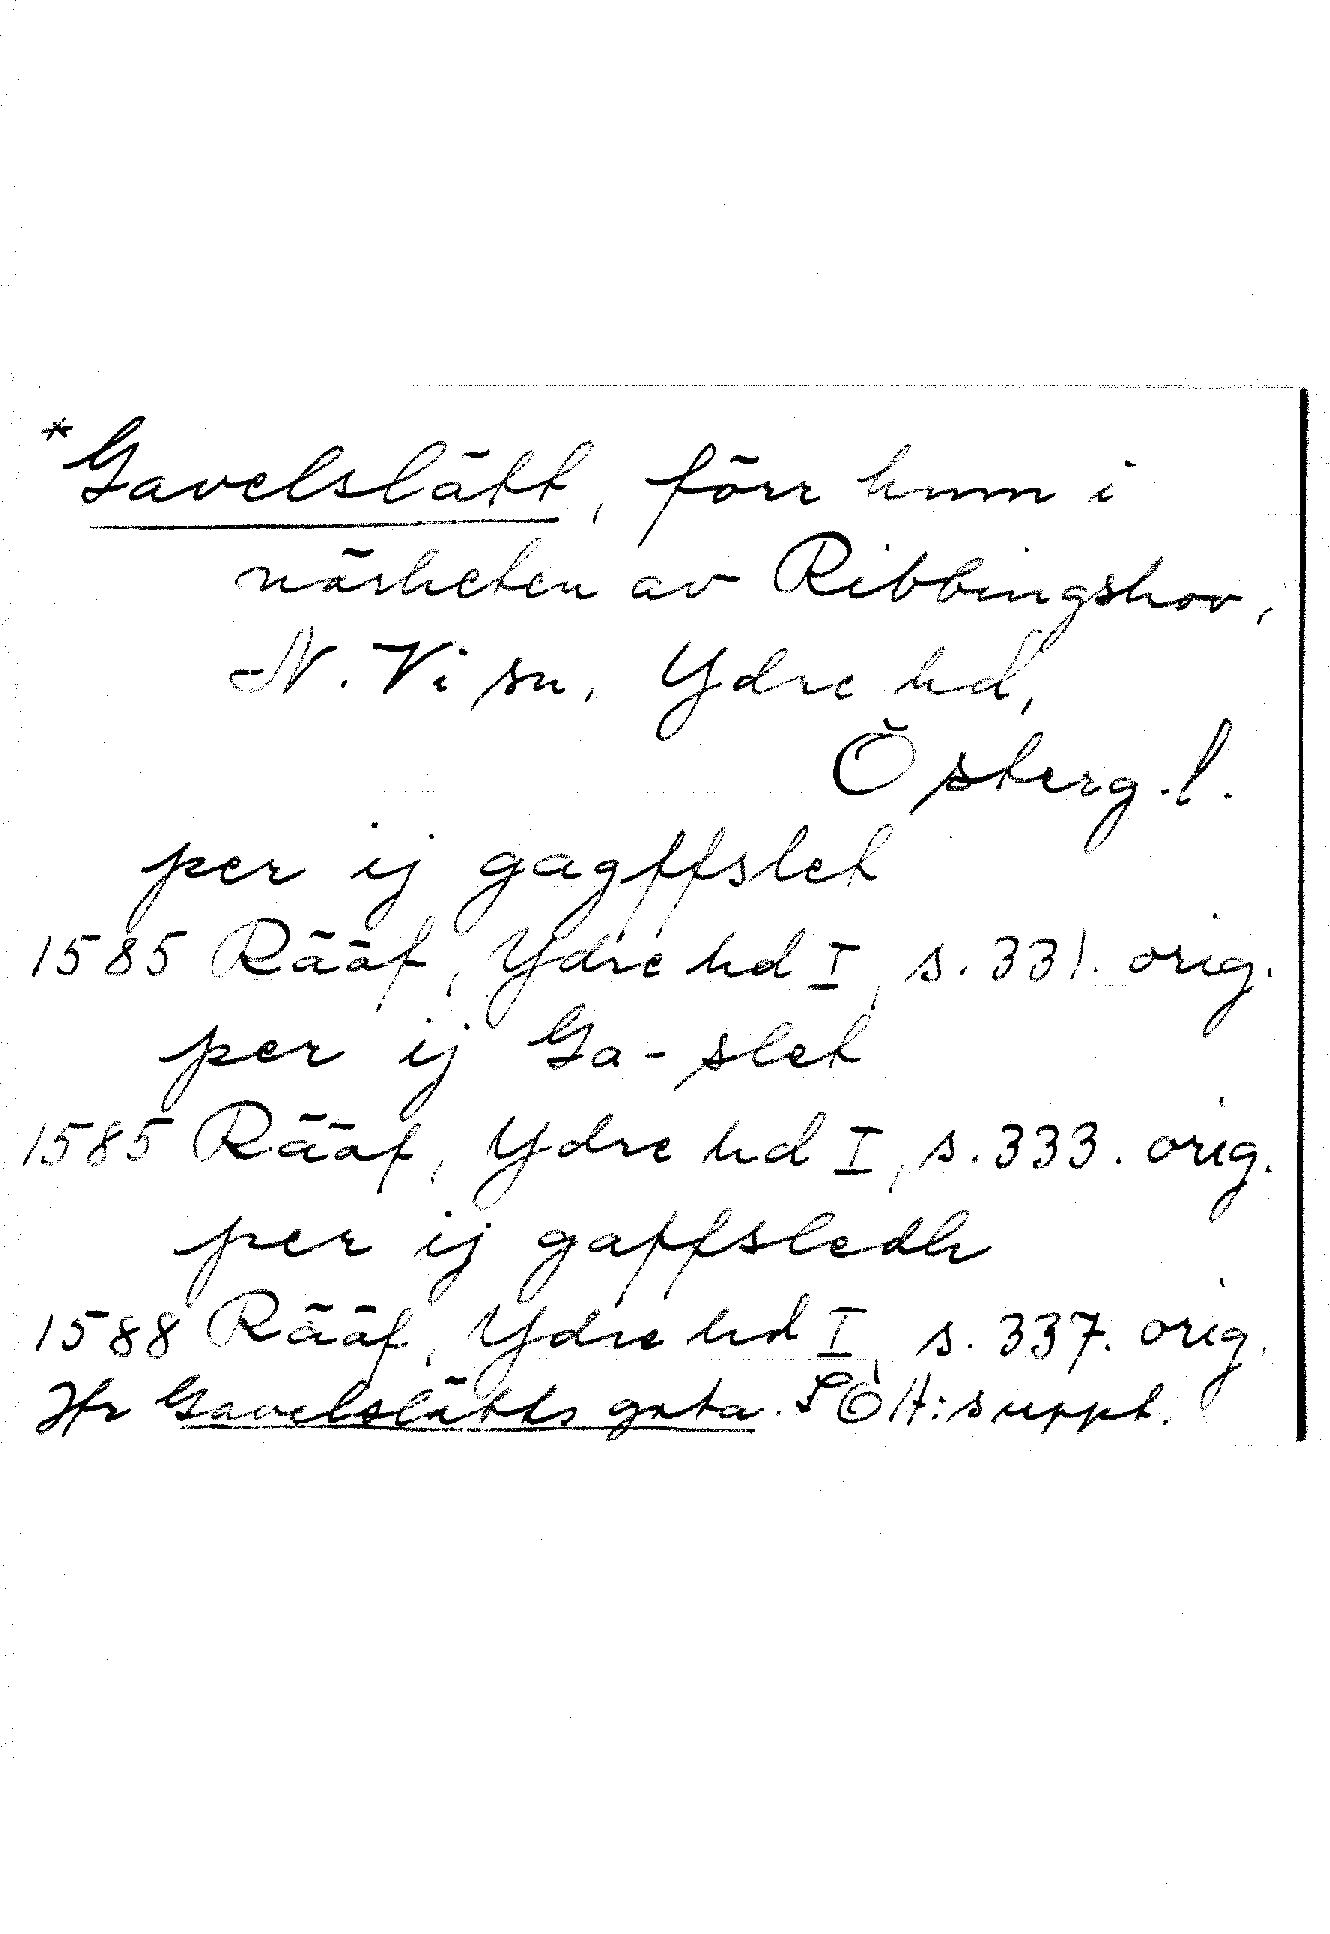 *Gavelslätt, förr hnm i
närheten av Ribbingshov,
N. Vi sn, Ydre hd,
Österg.l.
per ij gagffslet
1585 Rääf, Ydre hd I, s. 331. orig.
per ij Ga-slet
1585 Rääf, Ydre hd I, s. 333. orig.
per ij gaffsledh
1588 Rääf, Ydre hd I, s. 337. orig.
Jfr Gavelslätts gata. SÖH:suppt.